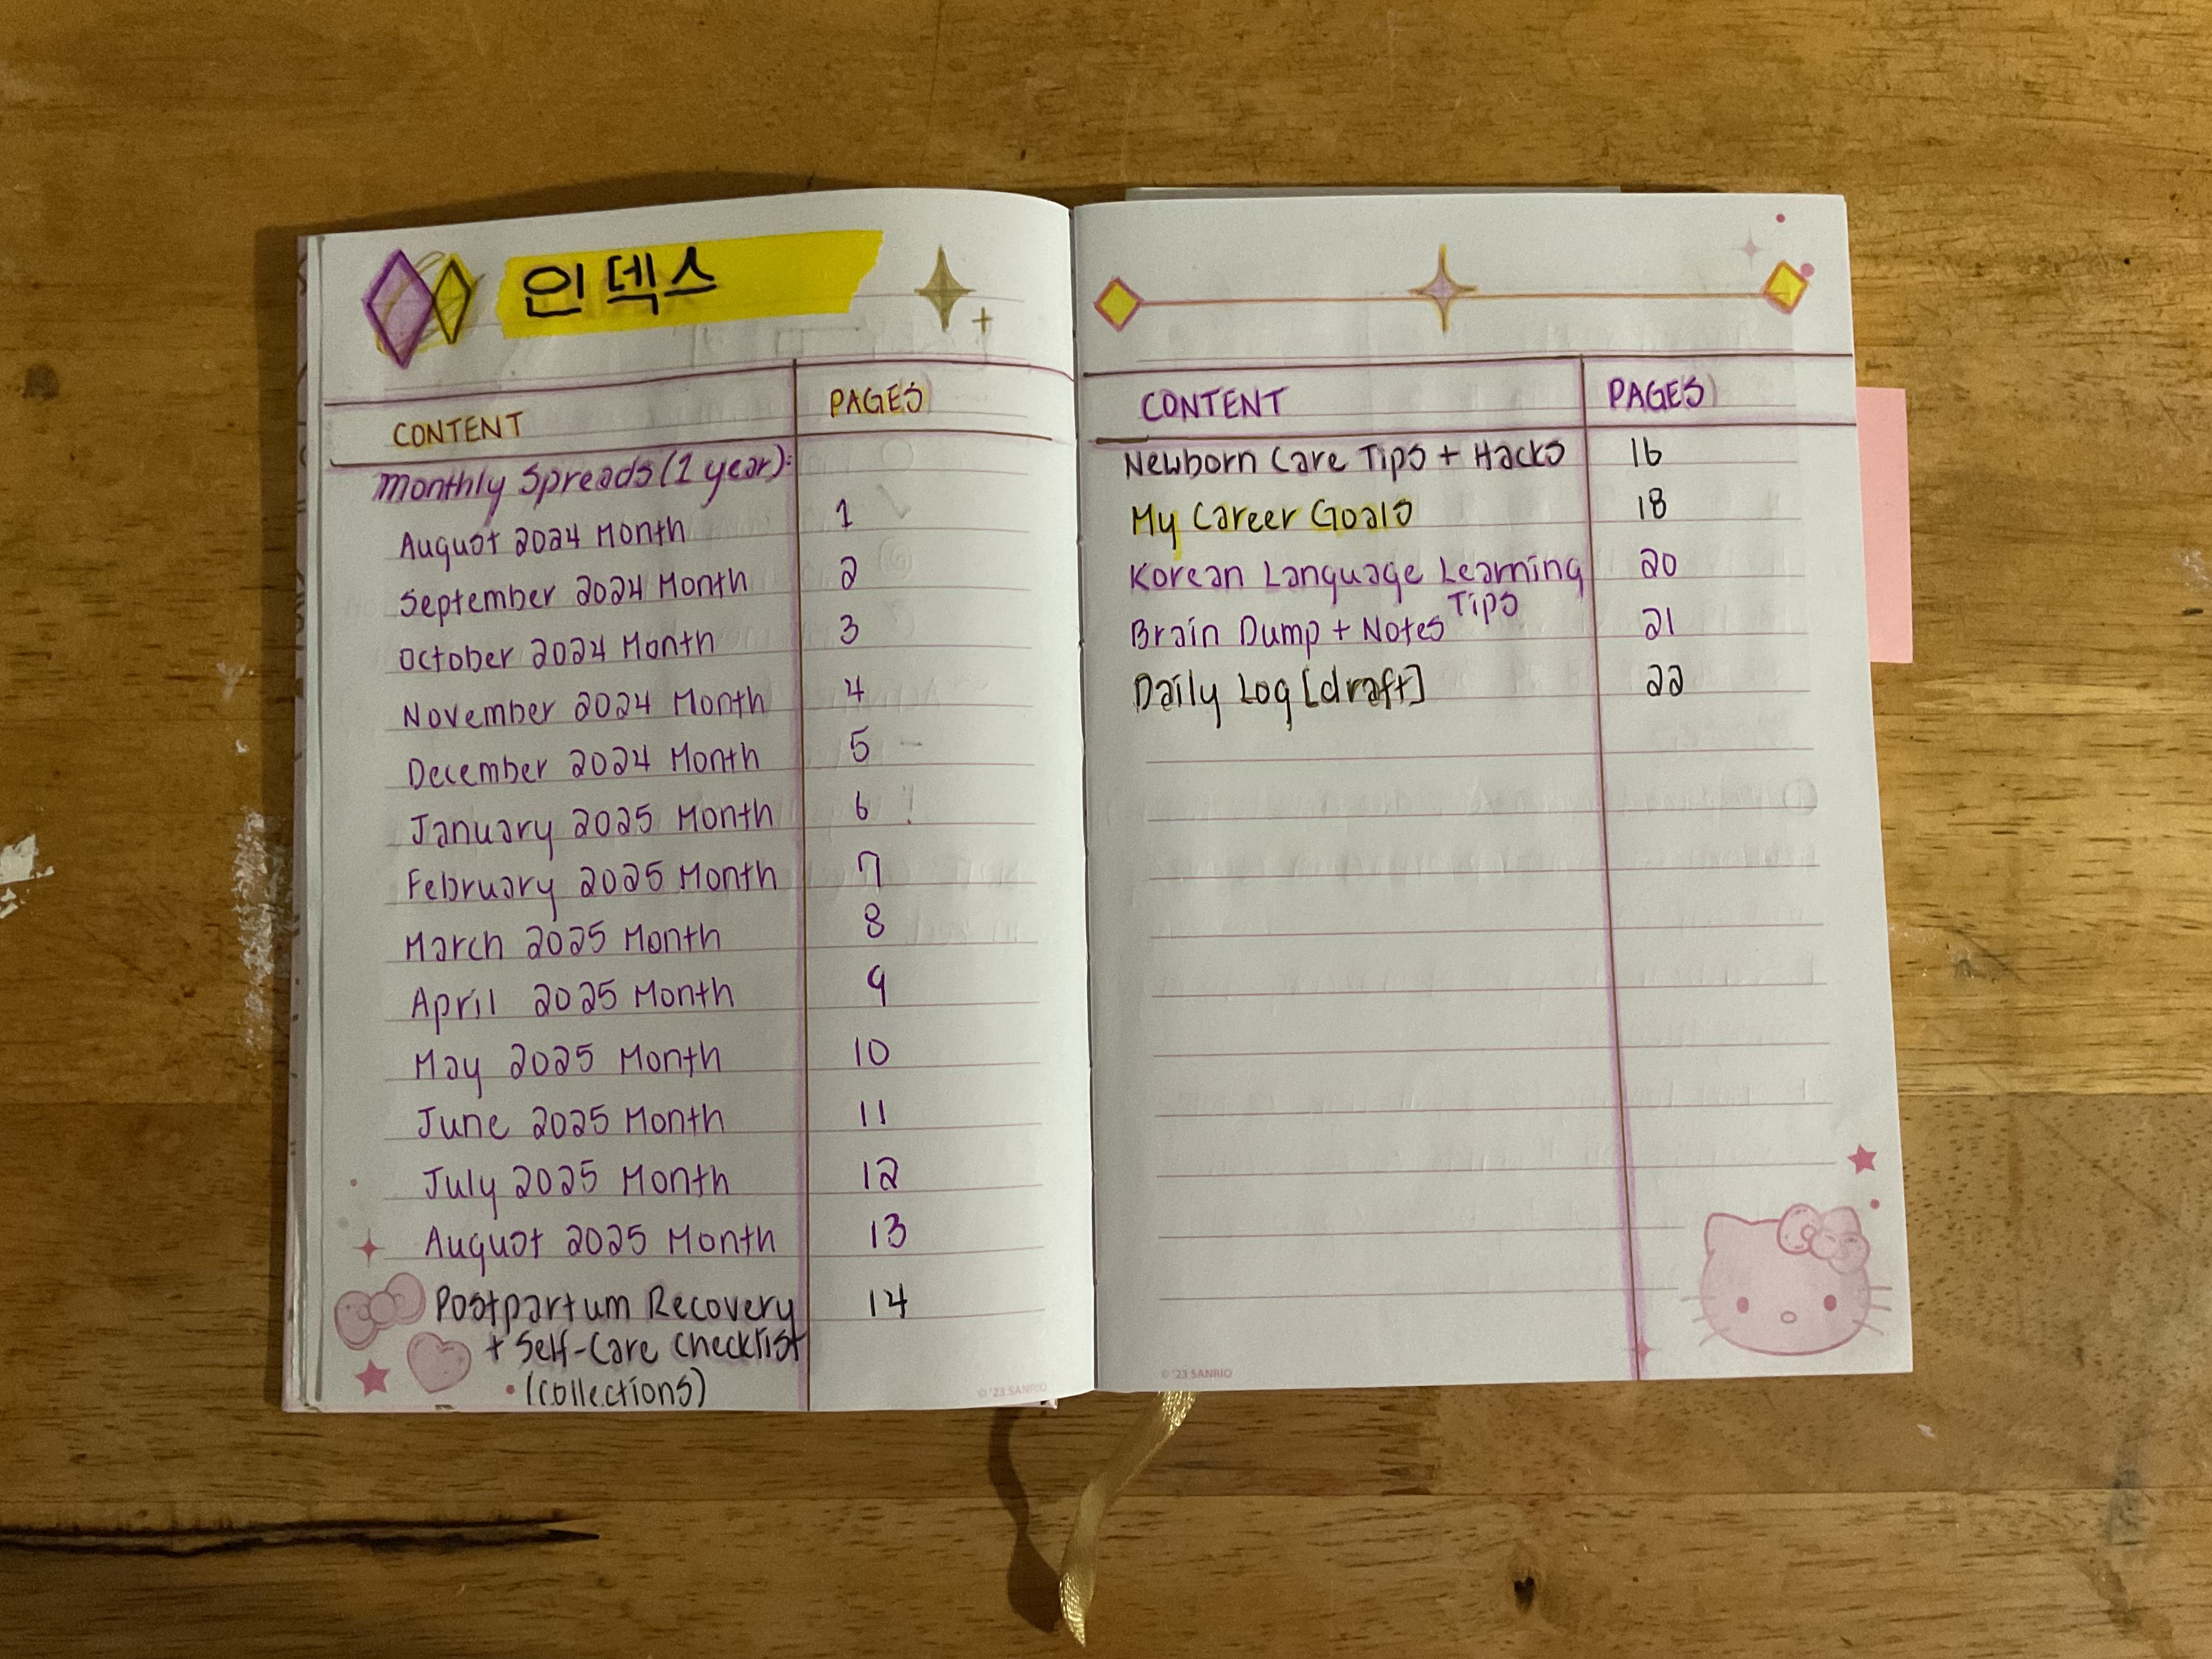 인덱스
CONTENT PAGES
Monthly Spreads (1 year):
August 2024 Month 1
September 2024 Month 2
October 2024 Month 3
November 2024 Month 4
December 2024 Month 5
January 2025 Month 6
February 2025 Month 7
March 2025 Month 8
April 2025 Month 9
May 2025 Month 10
June 2025 Month 11
July 2025 Month 12
August 2025 Month 13
Postpartum Recovery 14
+ Self-Care Checklist
• (Collections)
© '23 SANRIO
CONTENT PAGES
Newborn Care Tips + Hacks 16
My Career Goals 18
Korean Language Learning 20
Tips
Brain Dump + Notes 21
Daily Log [draft] 22
© '23 SANRIO